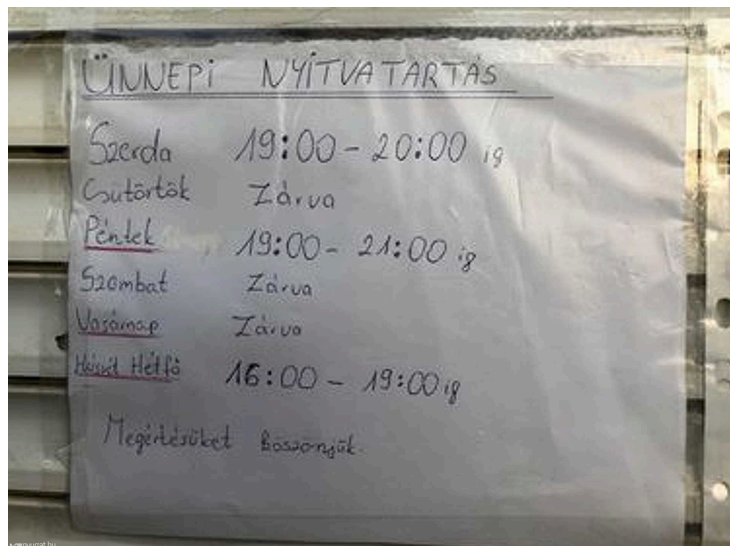 ÜNNEPI NYITVATARTÁS
Szerda 19:00 - 20:00 ig
Csütörtök Zárva
Péntek 19:00 - 21:00 ig
Szombat Zárva
Vasárnap Zárva
Húsvét Hétfő 16:00 - 19:00 ig
Megértésüket köszönjük.